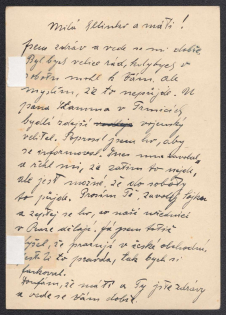 Milá Helinko a máti!
Jsem zdráv a vede se mi dobře.
Byl bych velice rád, kdybych v
sobotu mohl k Vám, ale
myslím, že to nepůjde. U
pana Hamma v Trmicích
bydlí zdejší vojenský
velitel. Poprosil jsem ho, aby
se informoval. Dnes
a řekl mi, že zatím to nejde,
ale jest možné, že do soboty
to půjde. Prosím Tě, zavolej
a zeptej se ho, co naši
v Praze dělají. Já jsem totiž
slyšel, že pracují v české obchodní.
Jestli že to pravda, tak bych si
Doufám, že máti a Ty jste zdrávy
a vede se Vám dobře.